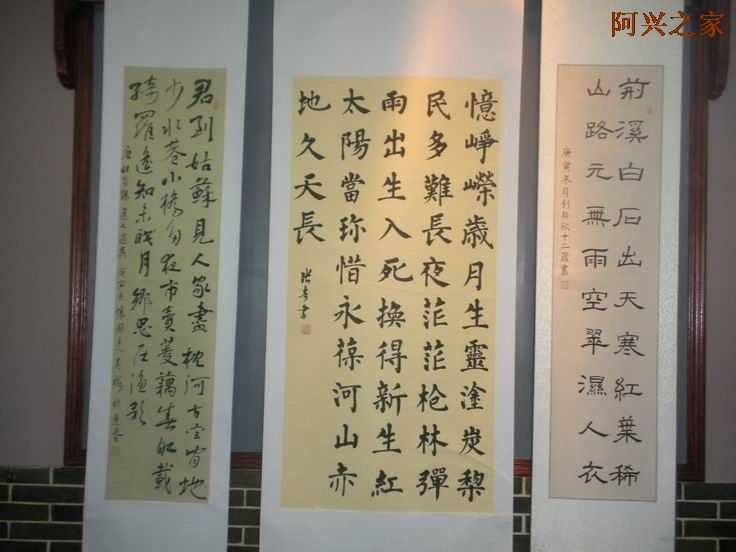 阿兴之家
荊溪白石出天寒紅葉稀
山路元無雨空翠濕人衣
庚寅冬月
憶崢嶸歲月生靈塗炭黎
民多難長夜茫茫槍林彈
雨出生入死換得新生紅
太陽當珍惜永葆河山亦
地久天長
君到姑蘇見人家盡枕河古宮閒地
少水巷小橋多夜市賣菱藕春船載
綺羅遙知未眠月鄉思在漁歌
唐杜荀鶴送人遊吳